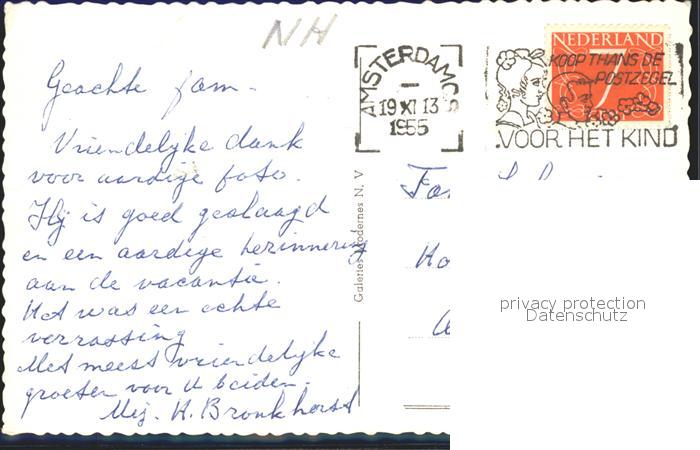 NH
Geachte fam.
Vriendelijke dank
voor aardige foto.
Hij is goed geslaagd
en een aardige herinnering
aan de vacantie.
Het was een echte
verrassing
Met meest vriendelijke
groeten voor U beiden.
Mej. H. Bronkhorst
Galeries Modernes N. V
AMSTERDAM CS
19 XI 13
1955
NEDERLAND
7
KOOP THANS DE
POSTZEGEL
VOOR HET KIND
Fa
privacy protection
Datenschutz